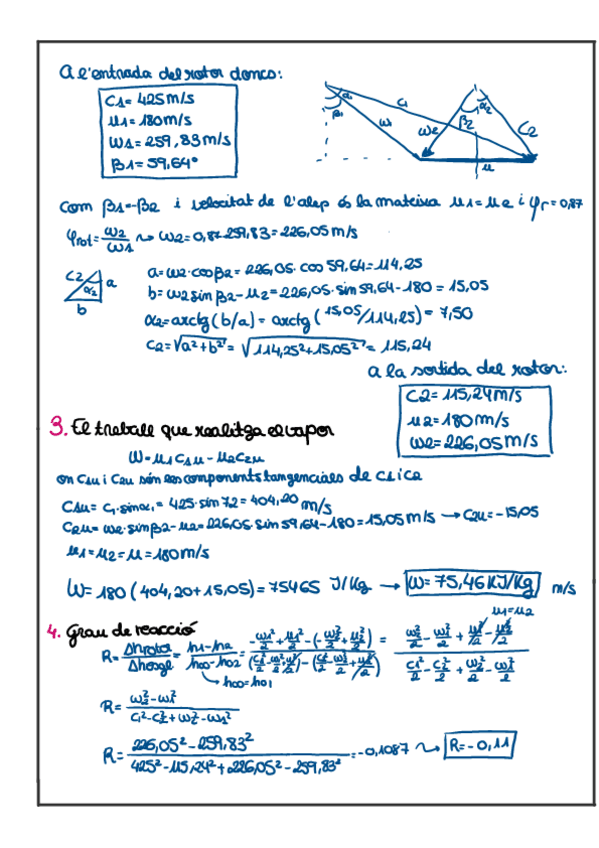 A l'entrada del rotor doncs:
C1= 425 m/s
u1= 180 m/s
w1= 259,83 m/s
β1= 59,64°
α1
β1
c1
w1
w2
β2
α2
C2
u
com β1=-β2 i velocitat de l'alep és la mateixa u1=u2 i φr=0,87
φrot= w2/w1 ⇝ w2=0,87·259,83=226,05 m/s
C2 α2 a
b
a= w2·cosβ2= 226,05·cos 59,64=114,25
b= w2 sinβ2-u2= 226,05·sin 59,64-180 = 15,05
α2= arctg(b/a) = arctg(15,05/114,25) = 7,50
C2= √a²+b² = √114,25²+15,05² = 115,24
a la sortida del rotor:
C2= 115,24 m/s
u2= 180 m/s
w2= 226,05 m/s
3. El treball que realitza el vapor
W= u1 C1u - u2 C2u
on C1u i C2u són les components tangencials de C1 i C2
C1u= C1·sinα1 = 425·sin 72 = 404,20 m/s
C2u= w2·sinβ2-u2= 226,05·sin 59,64-180=15,05 m/s → C2u=-15,05
u1=u2=u=180 m/s
W= 180 (404,20+15,05) = 75465 J/kg → W= 75,46 KJ/Kg m/s
4. Grau de reacció
u1=u2
R= Δhrotor/Δhesgl = h1-h2/h00-h02 = -w1²/2 + u1²/2 -(-w2²/2 + u2²/2) / (c1²/2 - w1²/2 + u1²/2) - (c2²/2 - w2²/2 + u2²/2) = w2²/2 - w1²/2 + u1²/2 - u2²/2 / c1²/2 - c2²/2 + w2²/2 - w1²/2
h00=h01
R= w2²-w1² / c1²-c2²+w2²-w1²
R= 226,05²-259,83² / 425²-115,24²+226,05²-259,83² = -0,1087 ⇝ R=-0,11